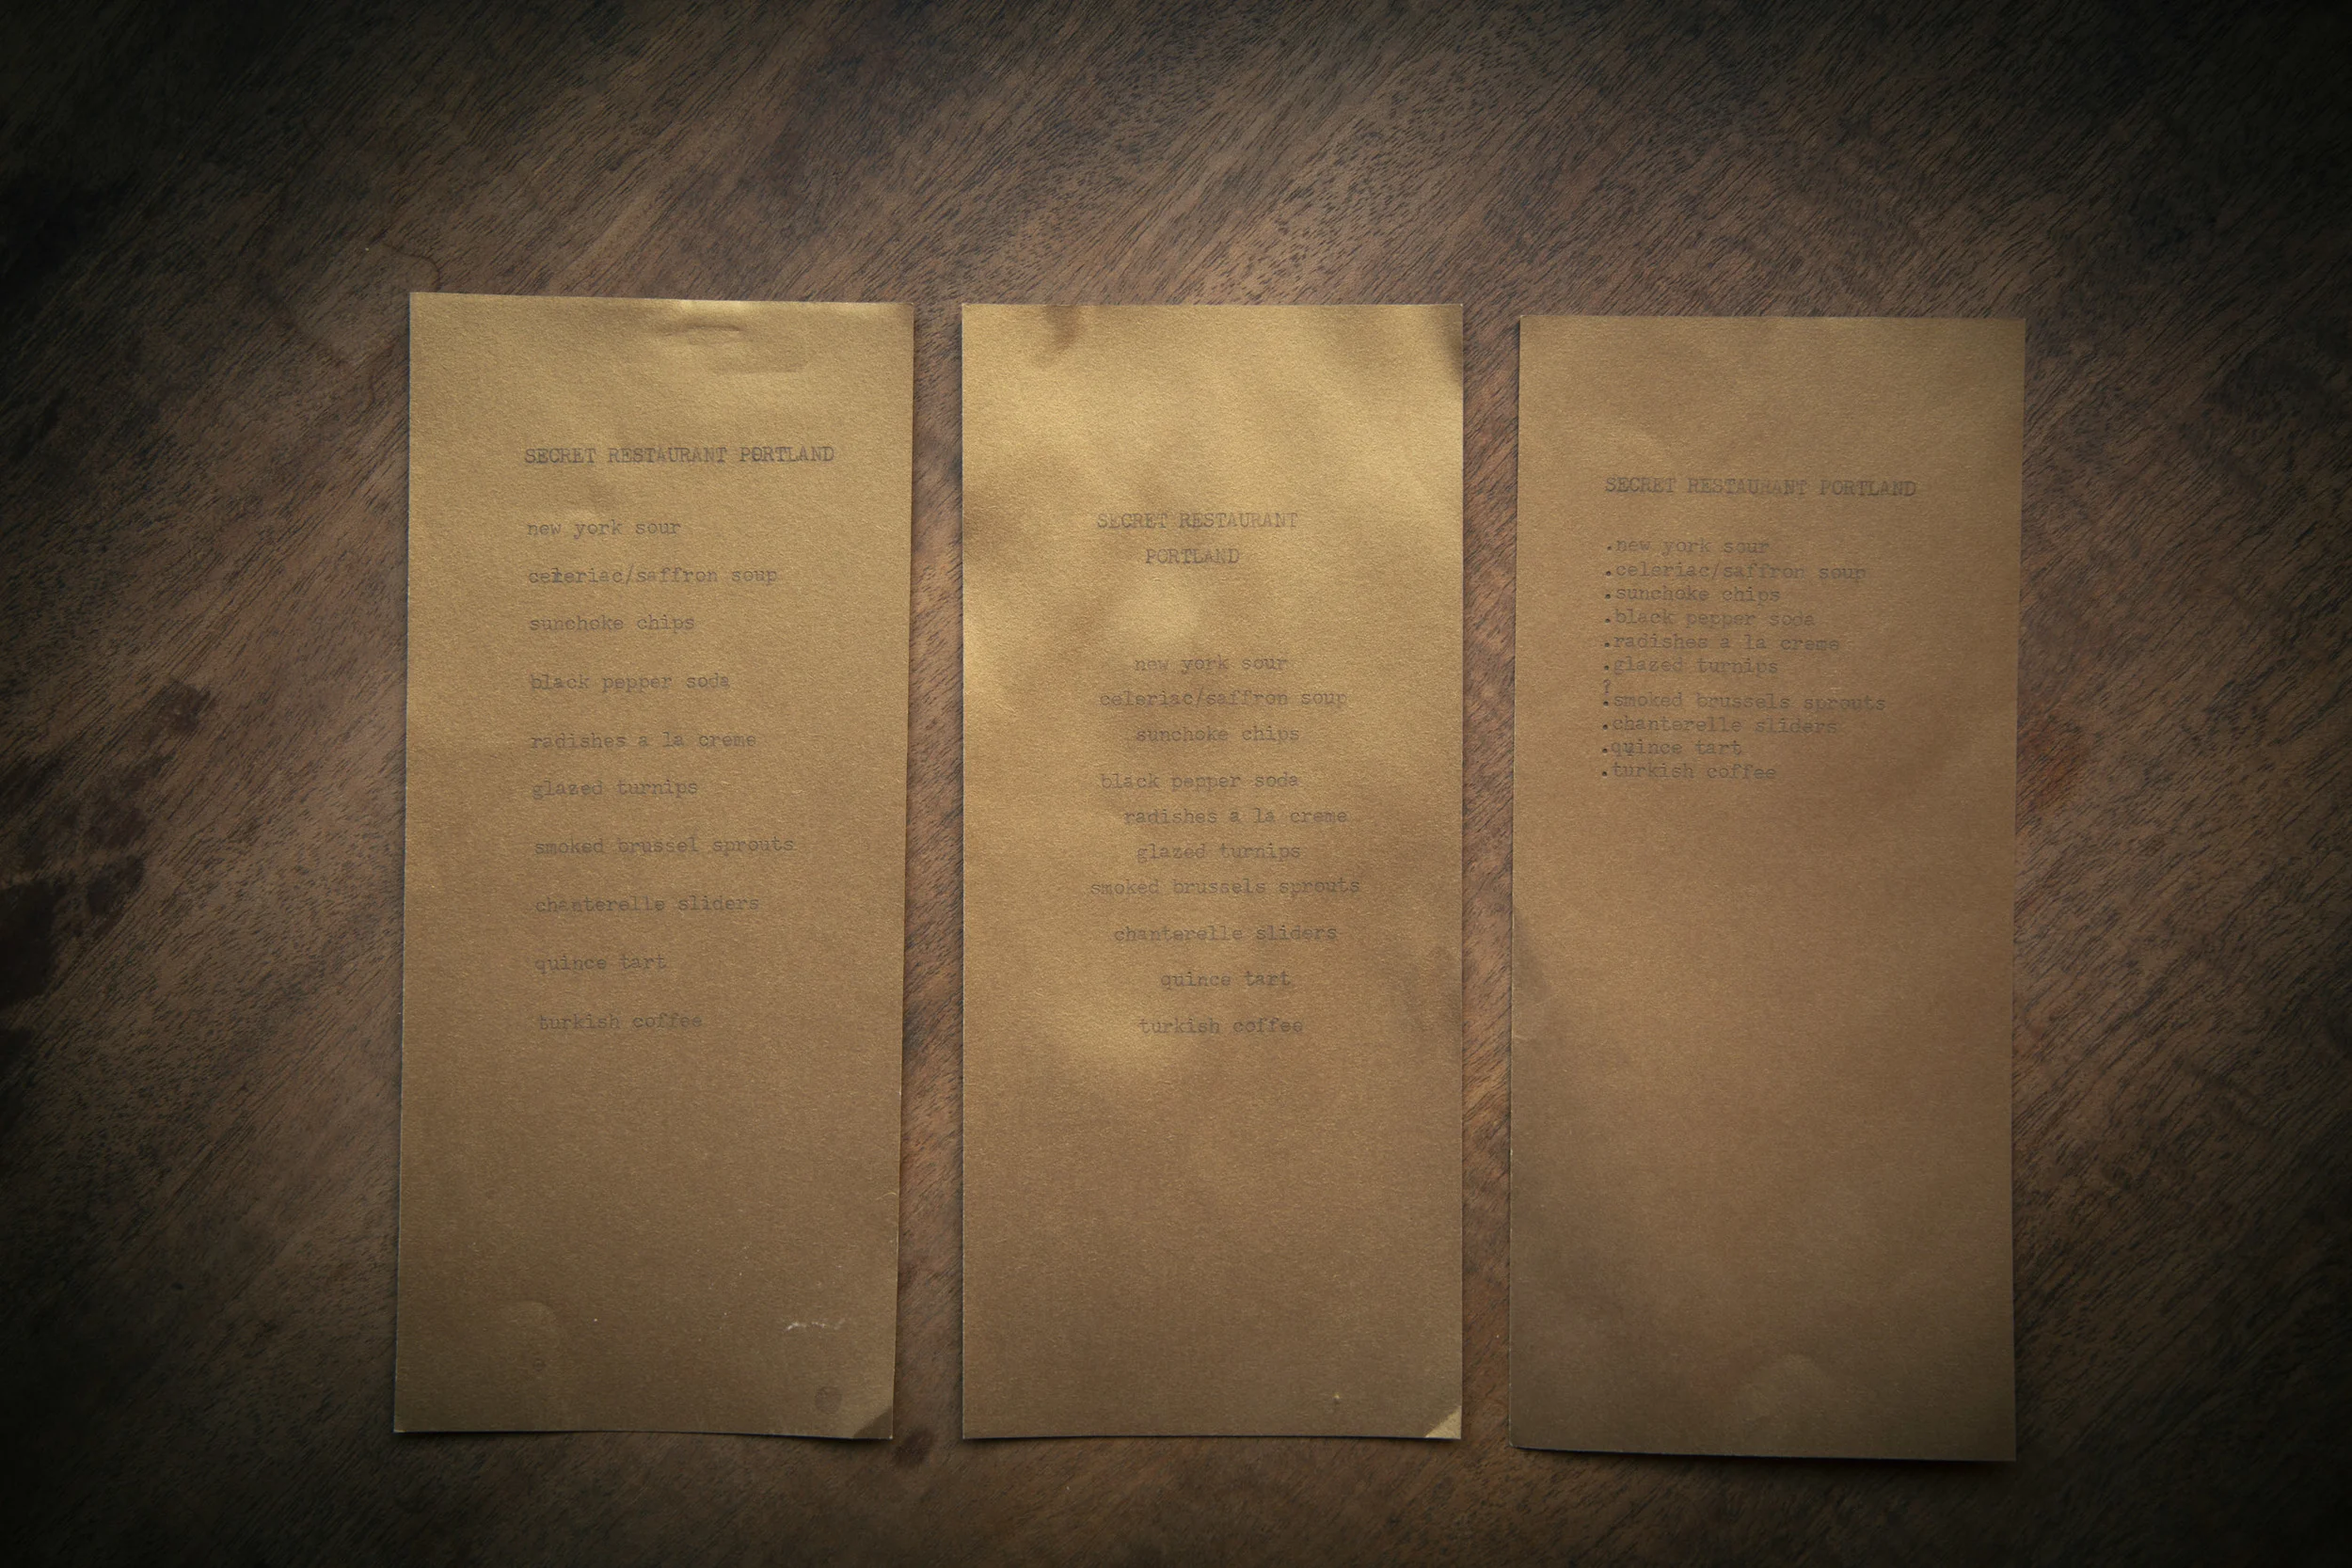 SECRET RESTAURANT PORTLAND
new york sour
celeriac/saffron soup
sunchoke chips
black pepper soda
radishes a la creme
glazed turnips
smoked brussel sprouts
chanterelle sliders
quince tart
turkish coffee
SECRET RESTAURANT
PORTLAND
new york sour
celeriac/saffron soup
sunchoke chips
black pepper soda
radishes a la creme
glazed turnips
smoked brussels sprouts
chanterelle sliders
quince tart
turkish coffee
SECRET RESTAURANT PORTLAND
.new york sour
.celeriac/saffron soup
.sunchoke chips
.black pepper soda
.radishes a la creme
.glazed turnips
.smoked brussels sprouts
.chanterelle sliders
.quince tart
.turkish coffee